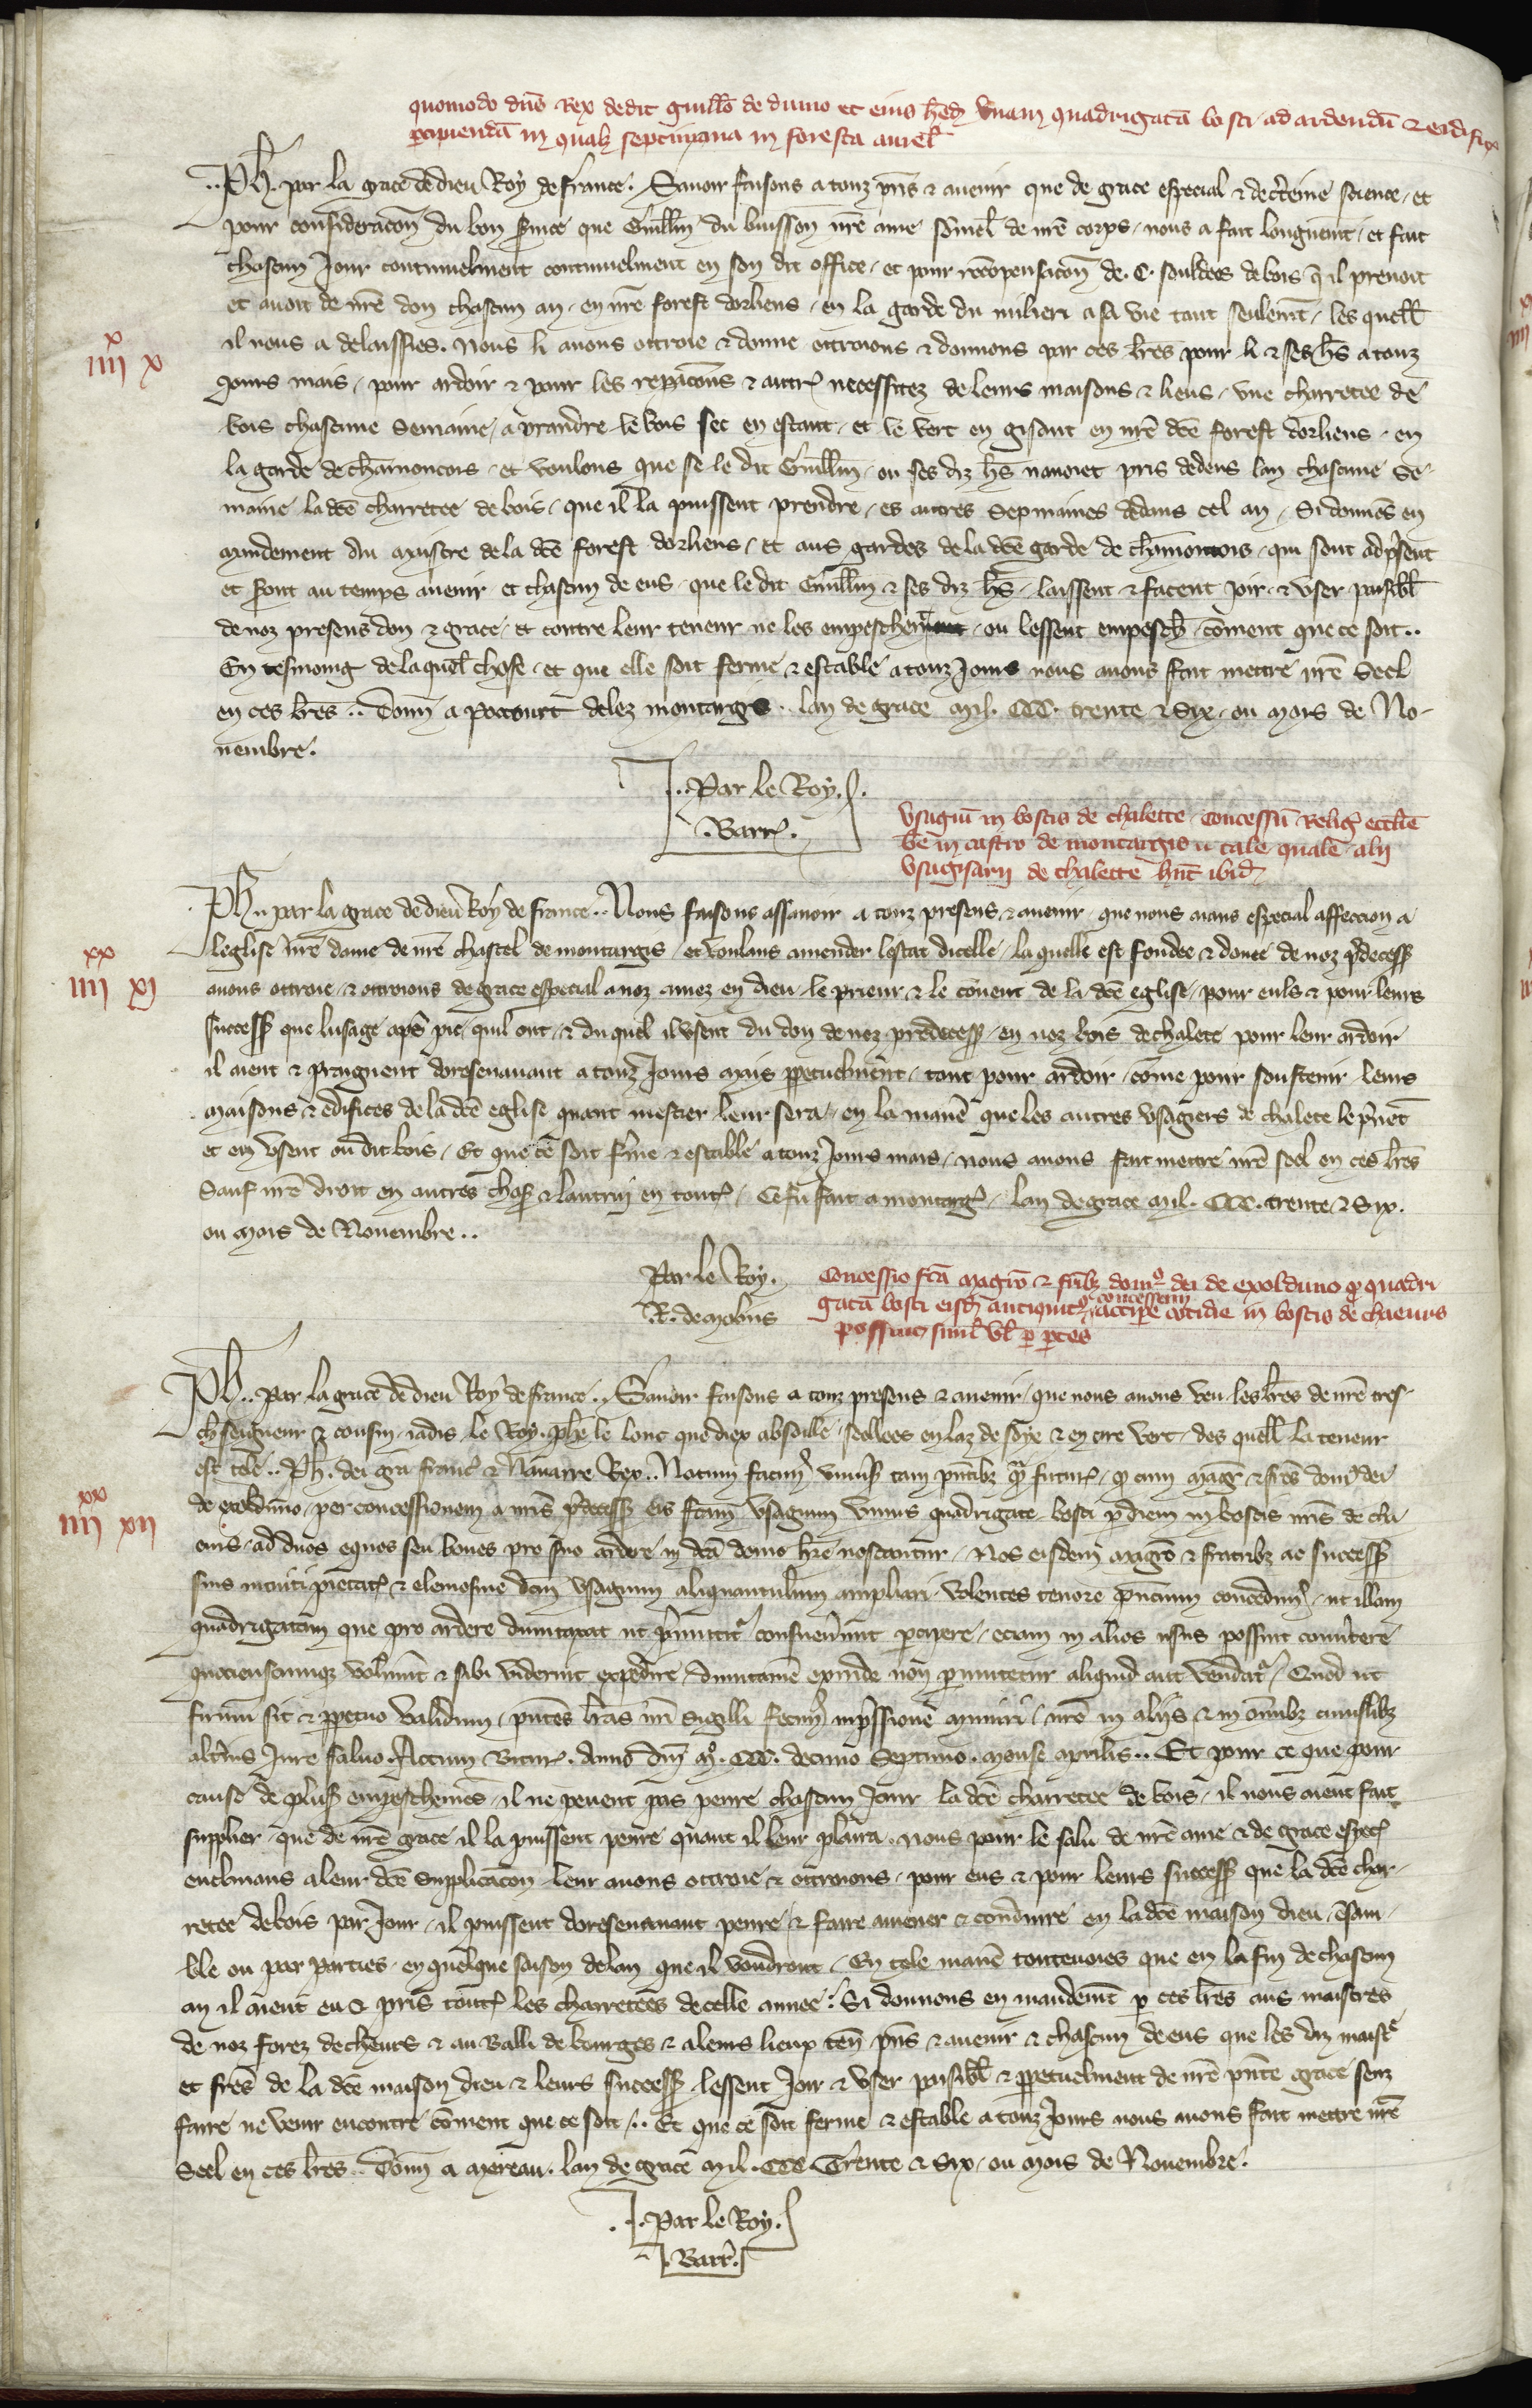 quomodo dns Rex dedit guillo de dumo et eius hed vnam quadrigata bosci ad ardendu & edific
percipienda in qualz septimana in foresta aurel
Ph. par la grace de dieu Roy de france. Sauoir faisons a touz pns & auenir que de grace especial & de certeine science, et
pour consideracon du bon seruice que Guillm du buisson nre ame somel de nre corps, nous a fait longuemt, et fait
chascun Jour continuelment continuelment en son dit office, et pour recompensacon de .C. souldees de bois q il prenoit
et auoit de nre don chascun an, en nre forest dorliens, en la garde du milieri a sa vie tant seulemt, les quell
il nous a delaissies. Nous li auons ottroie & donne ottroions & donnons par ces lres pour li & ses hs a touz
iiii x x
Jours mais, pour ardoir & pour les repacons & autres necessitez de leurs maisons & lieus, vne charretee de
bois chascune Semaine, a prandre le bois sec en estant, et le vert en gisant en nre dce forest dorliens, en
la garde de chamoncois, et voulons que se le dit Guillm, ou ses diz hs nauoiet pris dedens lan chascune Se-
maine la dce charretee de bois, que il la puissent prendre, es autres Sepmaines dedans cel an, Si donnes en
mandement Au maistre de la dce forest dorliens, et aus gardes de la dce garde de chamontois, qui sont adpsent
et seront au temps auenir et chascun de eus, que le dit Guillm & ses diz hs, laissent & facent Joir & vser paisibl
de noz presens don & grace, et contre leur teneur ne les empeschent, ou lessent empesch coment que ce soit..
En tesmoing de laquel chose, et que elle soit ferme & estable a touz Jours nous auons fait mettre nre Seel
en ces lres.. Donn a Paucourt delez montargis.. lan de grace mil. CCC. trente & Six, ou mois de No-
uembre.
..Par le Roy.
.Barr.
vsagiu in boscis de chalette, concessu Relig ecclie
be m in castro de montargis u tale quale alij
vsagiarij de chalette hnt ibid
Ph.. par la grace de dieu Roy de france.. Nous faisons assauoir a touz presens & auenir, que nous aians especial affeccion a
leglise nre dame de nre chastel de montargis, et voulans amender lestat dicelle, la quelle est fondee & donee de noz pdecess
xx
iiii xi
auons ottroie, & ottroions de grace especial a noz amez en dieu le prieur & le couent de la dce eglise, pour euls & pour leurs
success que lusage quil ont, & du quel il vsent du don de noz predecess, en noz bois de chalete pour leur ardoir
il aient & prangnent doresenauant a touz Jours mais ppetuelment, tant pour ardoir, come pour soustenir leurs
maisons & edifices de la dce eglise quant mestier leur sera, en la mane que les autres vsagiers de chalete le prnet
et en vsent ou dit bois, Et que ce soit ferme & estable a touz Jours mais, nous auons fait mettre nre seel en ces lres
Sauf nre droit en autres choses & lautruy en toutes, Ce fu fait a montarg, lan de grace mil. CCC. trente & Six.
ou mois de Nouembre..
Par le Roy.
.R. de molins
Concessio fca magro & frib3 dom9 dei de exolduno q quadri
gata bosci eisd antiquit9 concessam accipe cotidie in boscis de chaeuris
possint siml vl p ptes
Ph.. Par la grace de dieu Roy de france.. Sauoir faisons a touz presens & auenir, que nous auons veu les lres de nre tres
ch seigneur & cousin, iadis le Roy. phe le lonc que diex absoille, seellees en laz de soye & en cire vert, des quell la teneur
est tele.. Ph. dei gra franc & Nauarre Rex.. Notum facim9 vniuss tam pntib3 qm futur, q cum magr & fres dom9 dei
xx
iiii xii
de exolduno, per concessionem a nris pdecess eis fcam vsagium vnius quadrigate bosci p diem in boscis nris de cha
euris, ad duos equos seu boues pro suo ardere, in dca domo hre noscantur, Nos eisdem magro & fratrib3 ac success
suis intuitu pietat & elemosine dcm vsagium aliquantulum ampliari, volentes tenore pntium concedim9, ut illam
quadrigatam que pro ardere dumtaxat ut pmittitr consueuerunt pcipere, eciam in alios usus possint conuertere
quociensctunqz voluint & sibi viderint expedire, dumtame exinde non pmutetur aliquid aut vendatr, Quod ut
firmum sit & ppetuo validum, pntes lras nri Sigilli fecim9 impssione muniri, nro in alijs & in omib3 cuiuslib3
alterius Jure saluo. Actum Bitur. Anno dni mo. CCC. decimo Septimo. mense aprilis.. Et pour ce que pour
cause de pluss empeschemes, il ne peuent pas penre chascun Jour la dce charretee de bois, il nous aient fait
supplier que de nre grace il la puissent penre quant il leur plaira. nous pour le salu de nre ame & de grace espec
enclinans a leur dce Supplicacon leur auons ottroie & ottroions, pour eus & pour leurs success que la dce char-
retee de bois par Jour, il puissent doresenauant penre, & faire amener & conduire en la dce maison dieu, esam-
ble ou par parties, en quelque saison de lan que il voudront, En tele mane toutevoies que en la fin de chascun
an il aient eu & pris toutes les charretees de celle annee. Si donnons en mandemt p ces lres aus maistres
de noz forez de cheurs & au Balli de bourges & a leurs lieux ten pns & auenir & chascun de eus que les diz maistr
et fres de la dce maison dieu & leurs success lessent Joir & vser paisibl & ppetuelment de nre pnte grace senz
faire ne venir encontre coment que ce soit,.. Et que ce soit ferme & estable a touz Jours nous auons fait mettre nre
Seel en ces lres.. Donn a Mereau. lan de grace mil. CCC. Trente & Six, ou mois de Nouembre.
..Par le Roy.
.Barr.